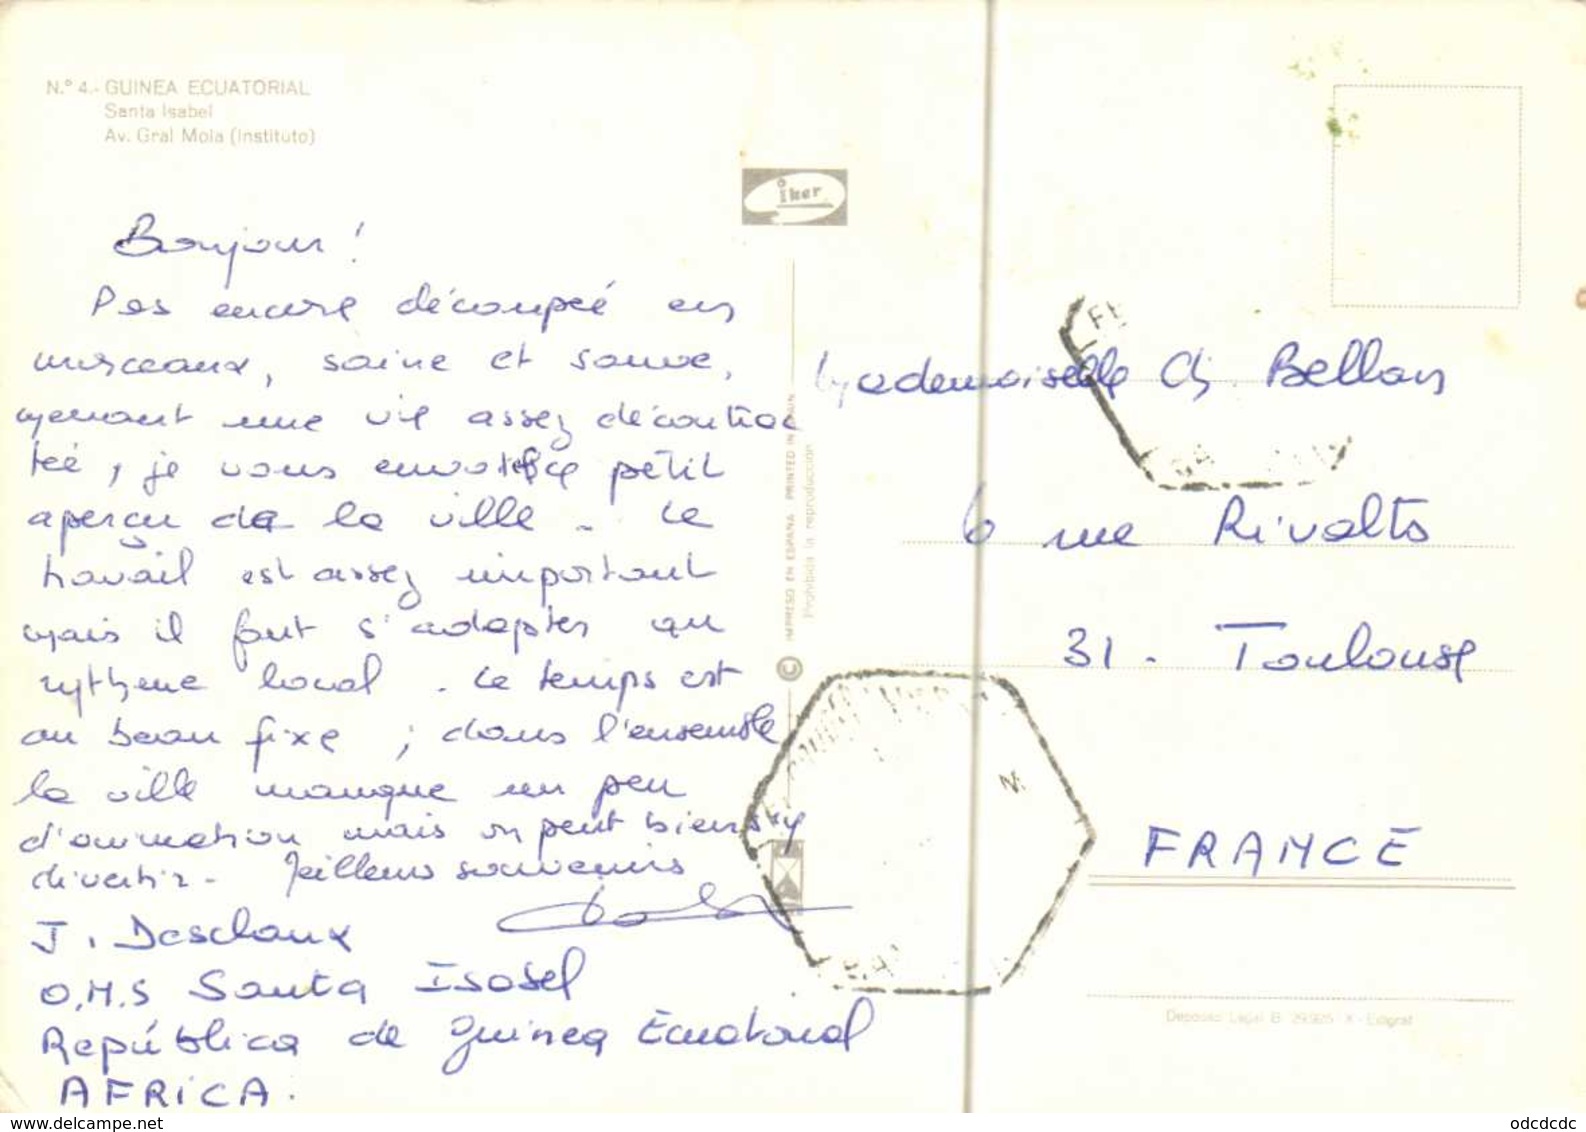 N.° 4.- GUINEA ECUATORIAL
Santa Isabel
Av. Gral Mola (Instituto)
iker
Bonjour !
Pas encore découpée en
morceaux, saine et sauve,
menant une vie assez décontrac
tée, je vous envoie ce petit
aperçu de la ville. Le
travail est assez important
mais il faut s'adapter au
rythme local. Le temps est
au beau fixe ; dans l'ensemble
la ville manque un peu
d'animation mais on peut bien s'y
divertir. Meilleurs souvenirs
J. Desclaux
O.M.S Santa Isabel
República de Guinea Ecuatorial
AFRICA.
© IMPRESO EN ESPAÑA PRINTED IN SPAIN
Prohibida la reproducción
Mademoiselle Bellan
6 rue Rivals
31. Toulouse
FRANCE
Depósito Legal B. 29.925-X
delcampe.net
odcdcdc